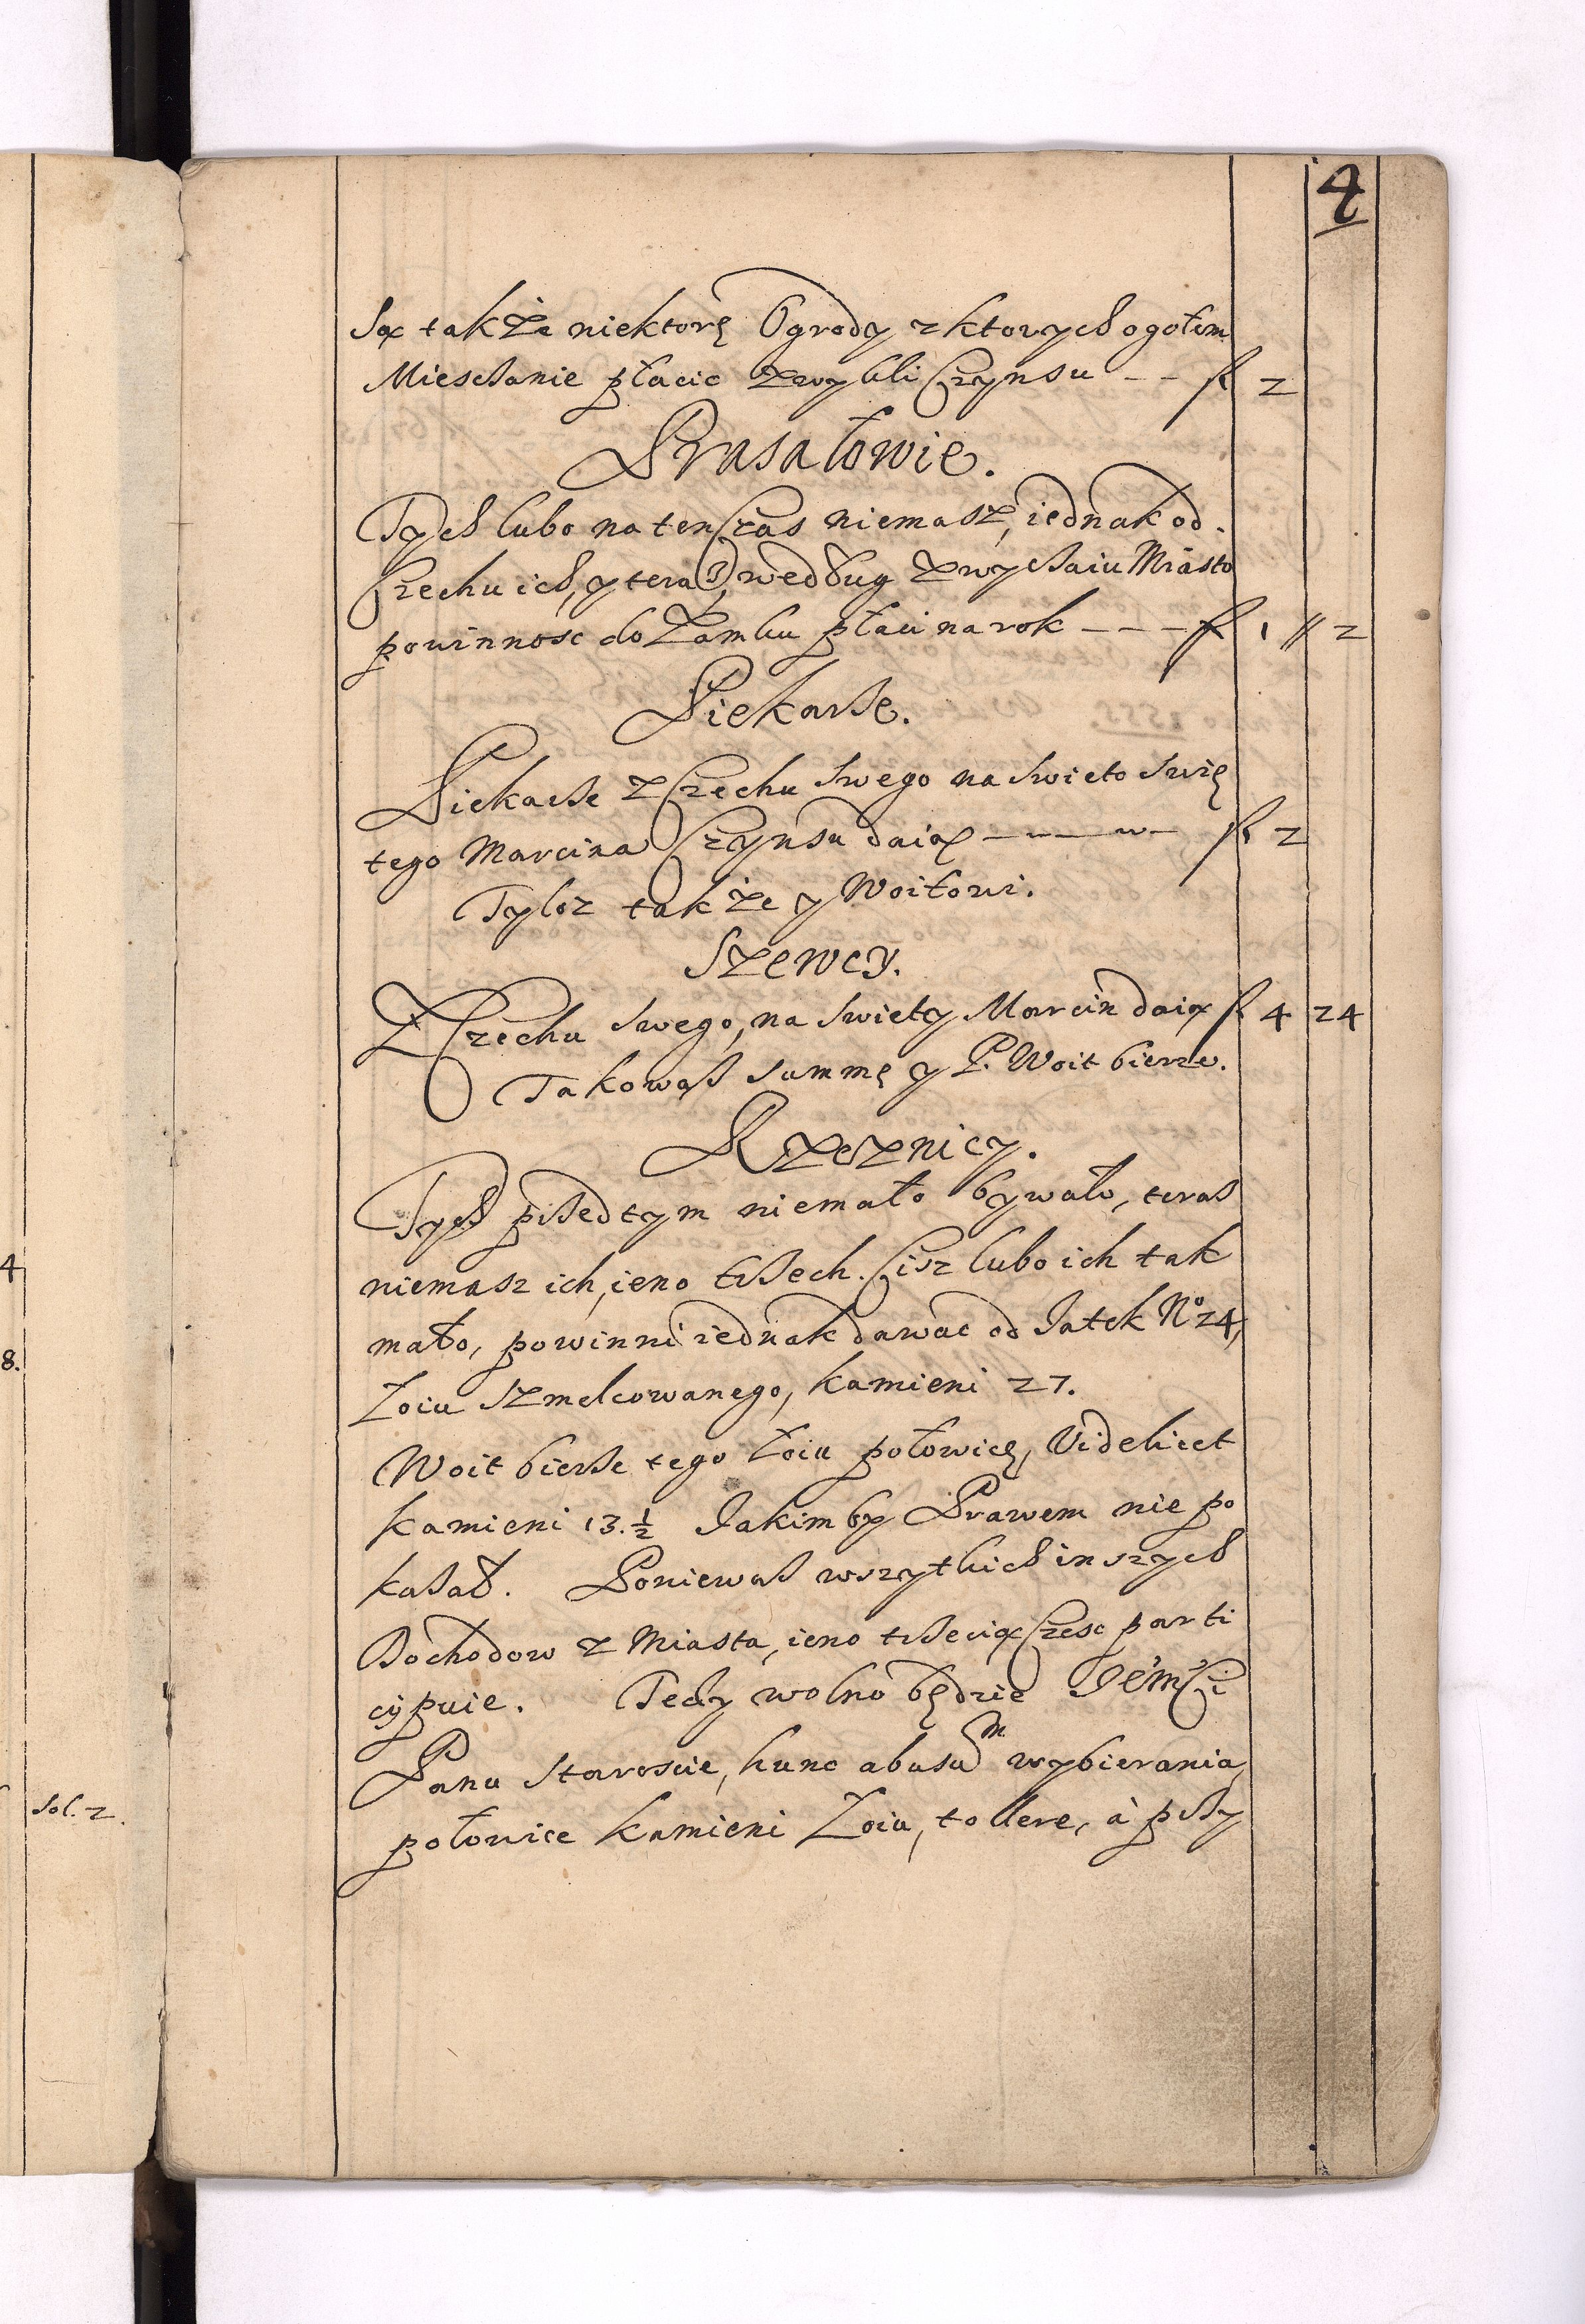 4
Są także niektorę Ogrody z ktorych ogołem
Miesczanie płacic zwykli Czynsu - - fl 2
Prasałowie.
Tych lubo na ten Czas niemasz, iednak od
Czechu ich, y teraz, według zwyczaiu Miasto
powinnosc do Zamku płaci na rok - - - fl 1 // 2
Piekarze.
Piekarze z Czechu swego na swieto Swię
tego Marcina Czynsu daią - - - - fl 2
Tyloz także y Woitowi.
Szewcy.
Z Czechu swego, na swięty Marcin daią fl 4 24
Takowąż summę y P. Woit bierze.
Rzeznicy.
Tych przedtym niemało bywało, teraz
niemasz ich, ieno trzech. Cisz lubo ich tak
mało, powinni iednak dawac od Jatek No 24,
Łoiu szmelcowanego, kamieni 27.
Woit bierze tego łoiu połowicę, Videlicet
kamieni 13. 1/2 Jakimby Prawem nie po
kazał. Poniewaz wszytkich inszych
Dochodow z Miasta, ieno trzecią Czesc parti
cypuie. Tedy wolno będzie JeMCi
Panu Staroscie, hunc abusum wybierania
połowice kamieni Łoiu, tollere, à przy
4
8.
sol. 2.